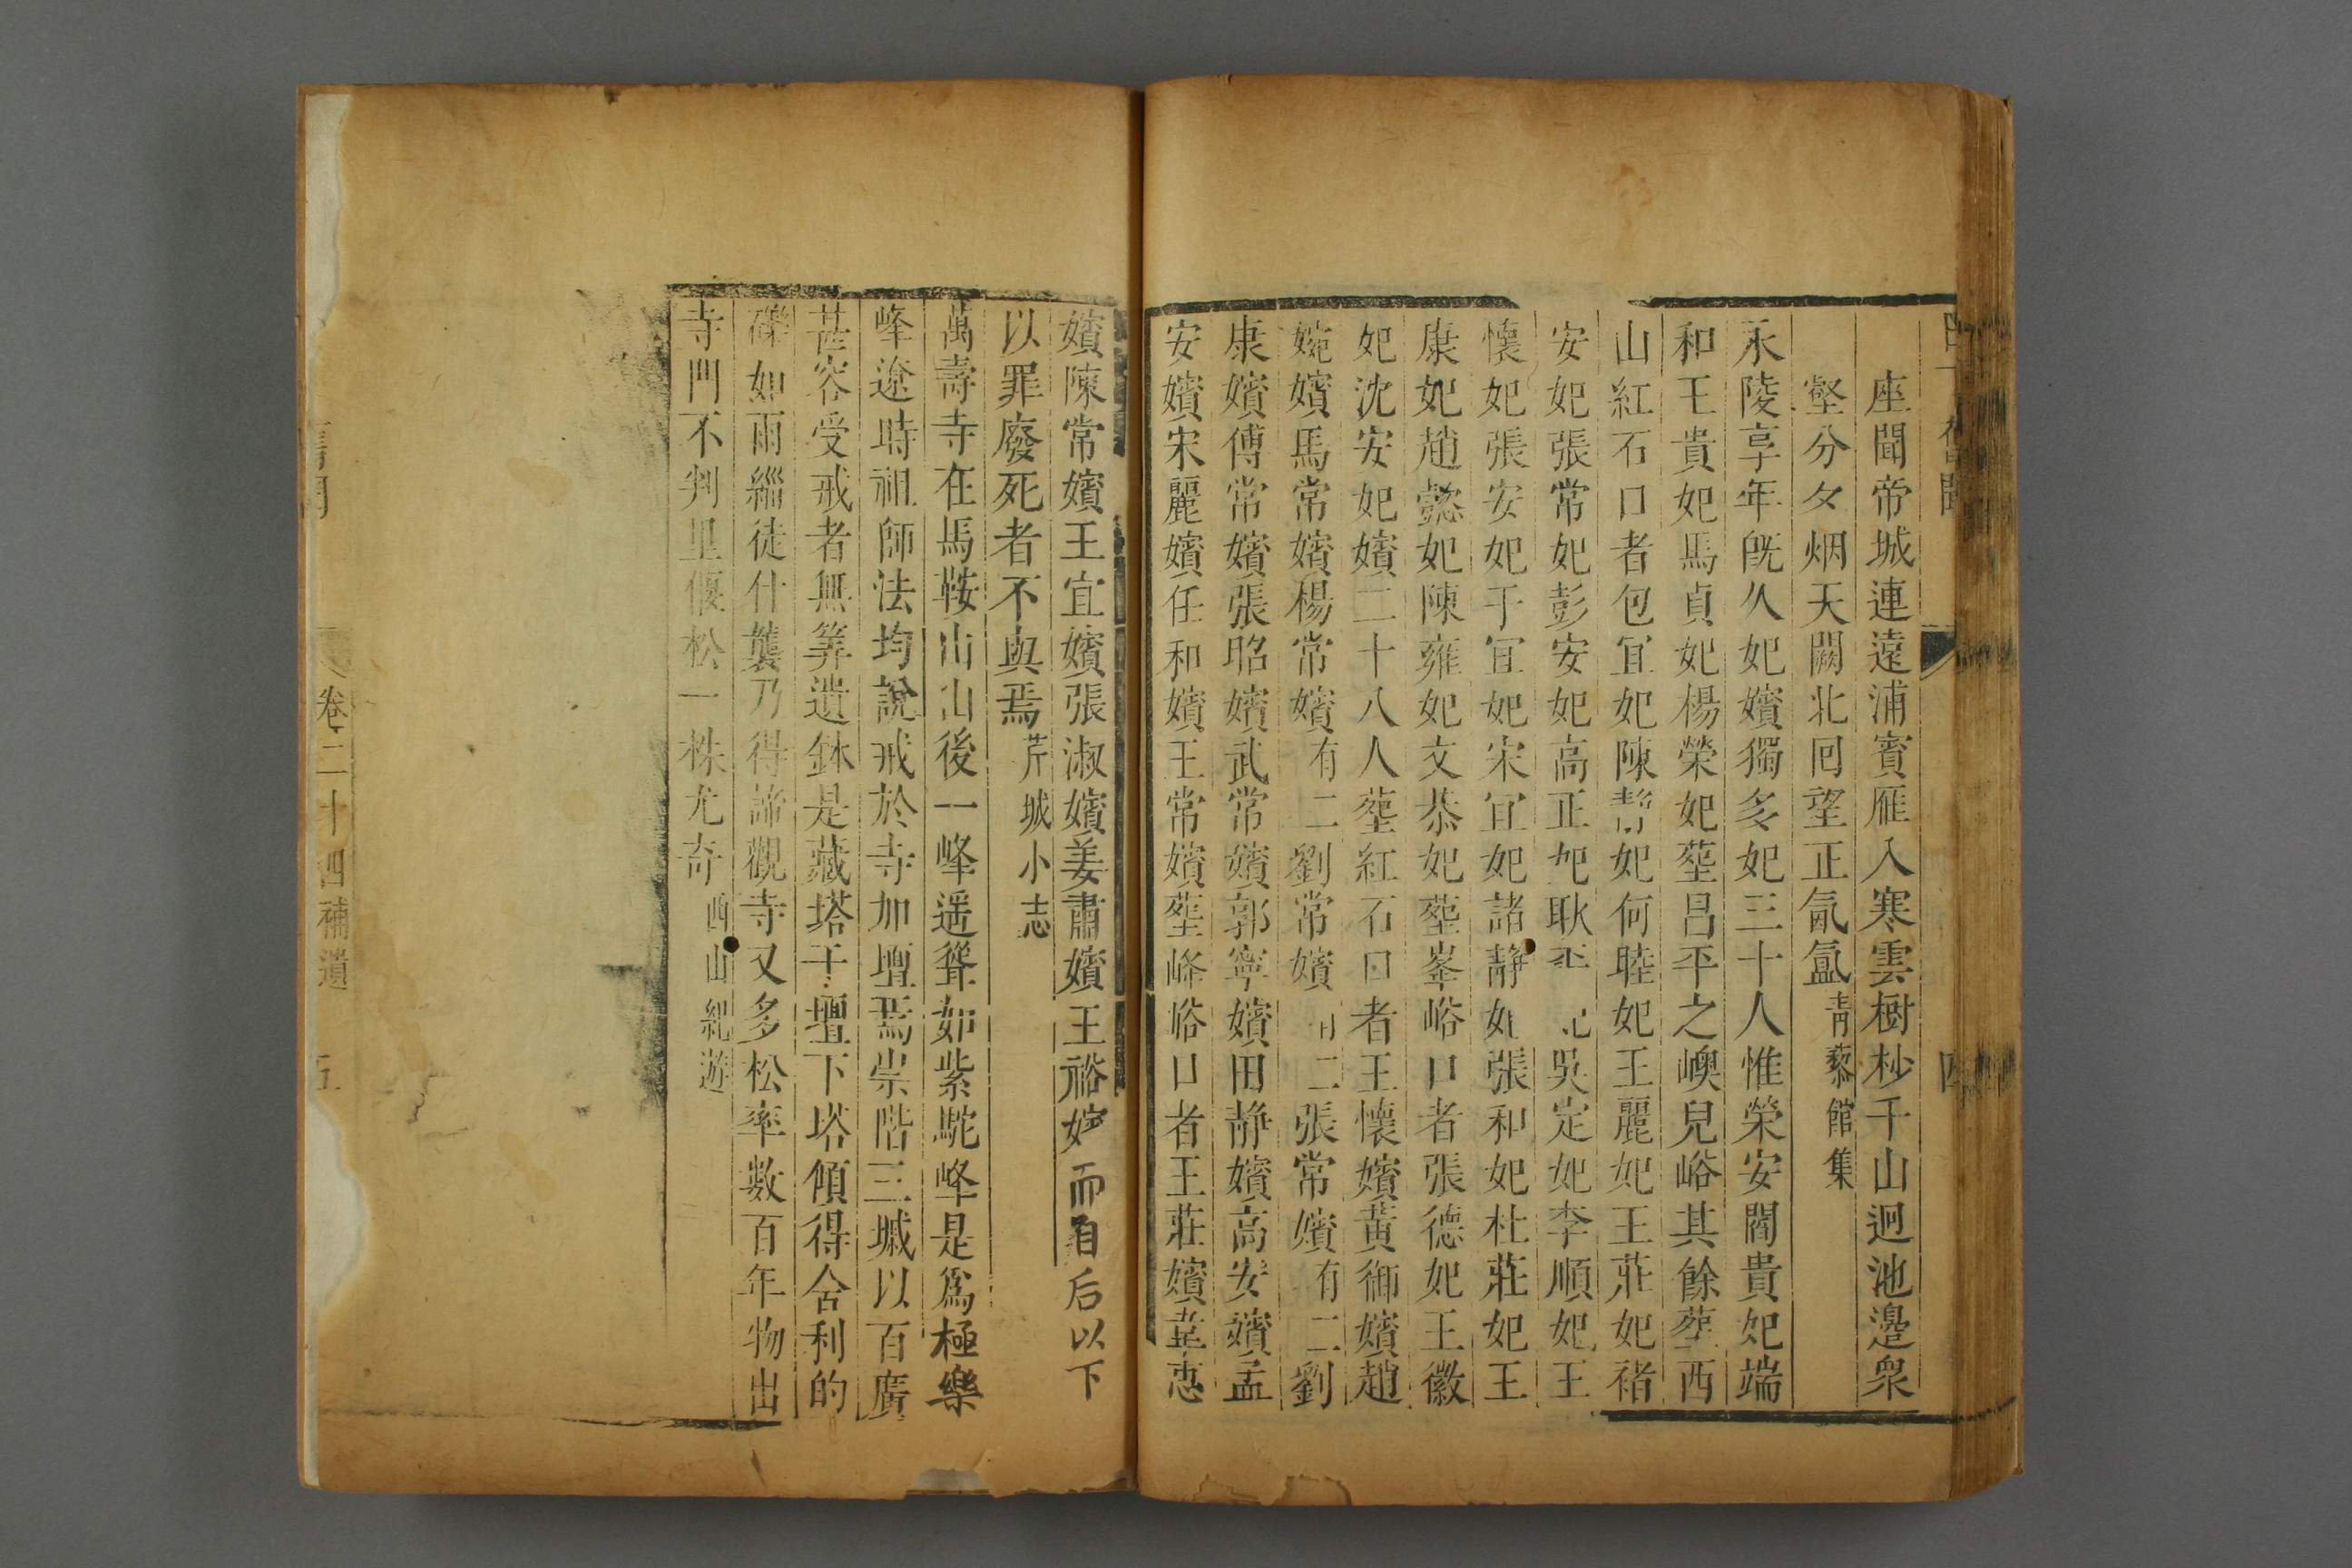 座聞帝城連遠浦賓雁入寒雲樹杪千山迥池邉衆
壑分夕烟天闕北囘望正氤氳青藜館集
永陵享年旣久妃嬪獨多妃三十人惟榮安閻貴妃端
和王貴妃馬貞妃楊榮妃葬昌平之嶼兒峪其餘葬西
山紅石口者包宜妃陳靜妃何睦妃王麗妃王莊妃褚
安妃張常妃彭安妃高正妃耿 妃吳定妃李順妃王
懷妃張安妃于宜妃宋宜妃諸靜妃張和妃杜莊妃王
康妃趙懿妃陳雍妃文恭妃葬峯峪口者張德妃王徽
妃沈安妃嬪二十八人葬紅石口者王懷嬪黃御嬪趙
婉嬪馬常嬪楊常嬪有二劉常嬪有二張常嬪有二劉
康嬪傅常嬪張昭嬪武常嬪郭寧嬪田靜嬪高安嬪孟
安嬪宋麗嬪任和嬪王常嬪葬峰峪口者王莊嬪韋惠
嬪陳常嬪王宜嬪張淑嬪姜肅嬪王裕嬪而自后以下
以罪廢死者不與焉芹城小志
萬壽寺在馬鞍山山後一峰遥聳如紫駝峰是爲極樂
峰遼時祖師法均說戒於寺加壇焉崇階三墄以百廣
甚容受戒者無筭遺鉢是藏塔于壇下塔傾得舍利的
礫如雨緇徒什襲乃得諦觀寺又多松率數百年物出
寺門不判里偃松一株尤奇西山紀遊
舊聞 卷二十四補遺 五